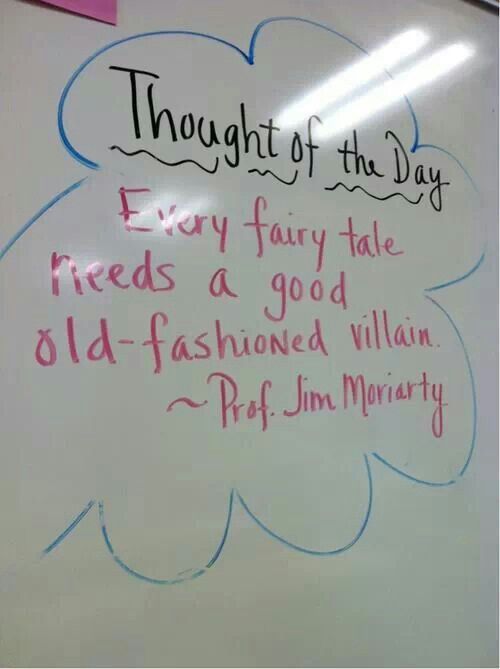 Thought of the Day
Every fairy tale
needs a good
old-fashioned villain.
~Prof. Jim Moriarty